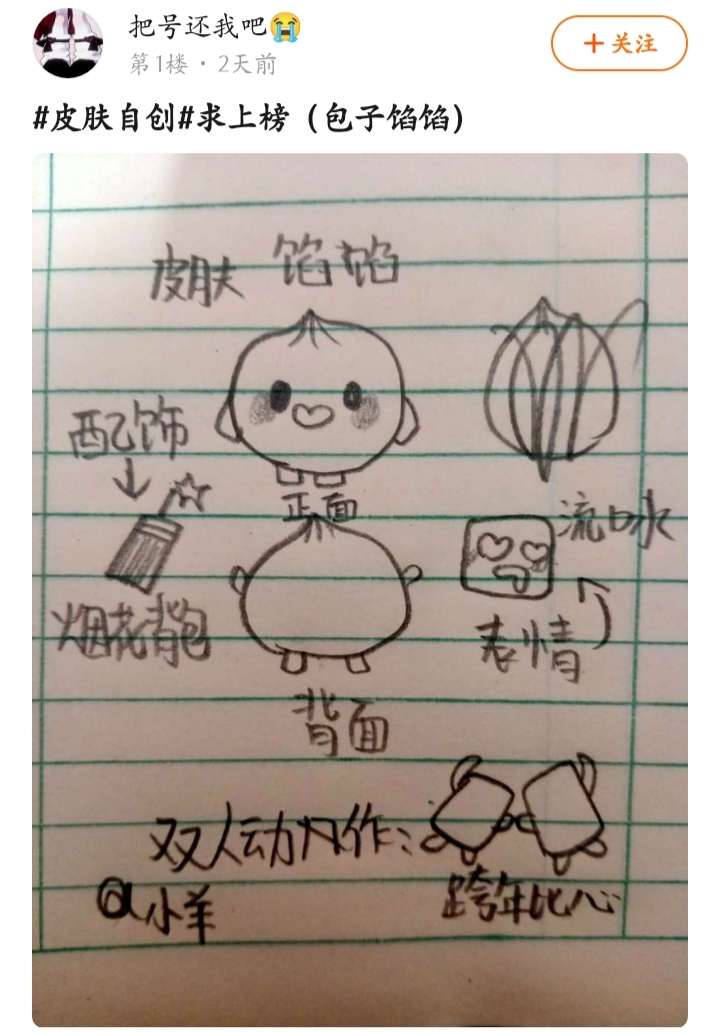 把号还我吧😭
第1楼·2天前
+关注
#皮肤自创#求上榜（包子馅馅）
皮肤 馅馅
配饰
正面
流口水
烟花背包
表情
背面
双人动作：
跨年比心
@小羊